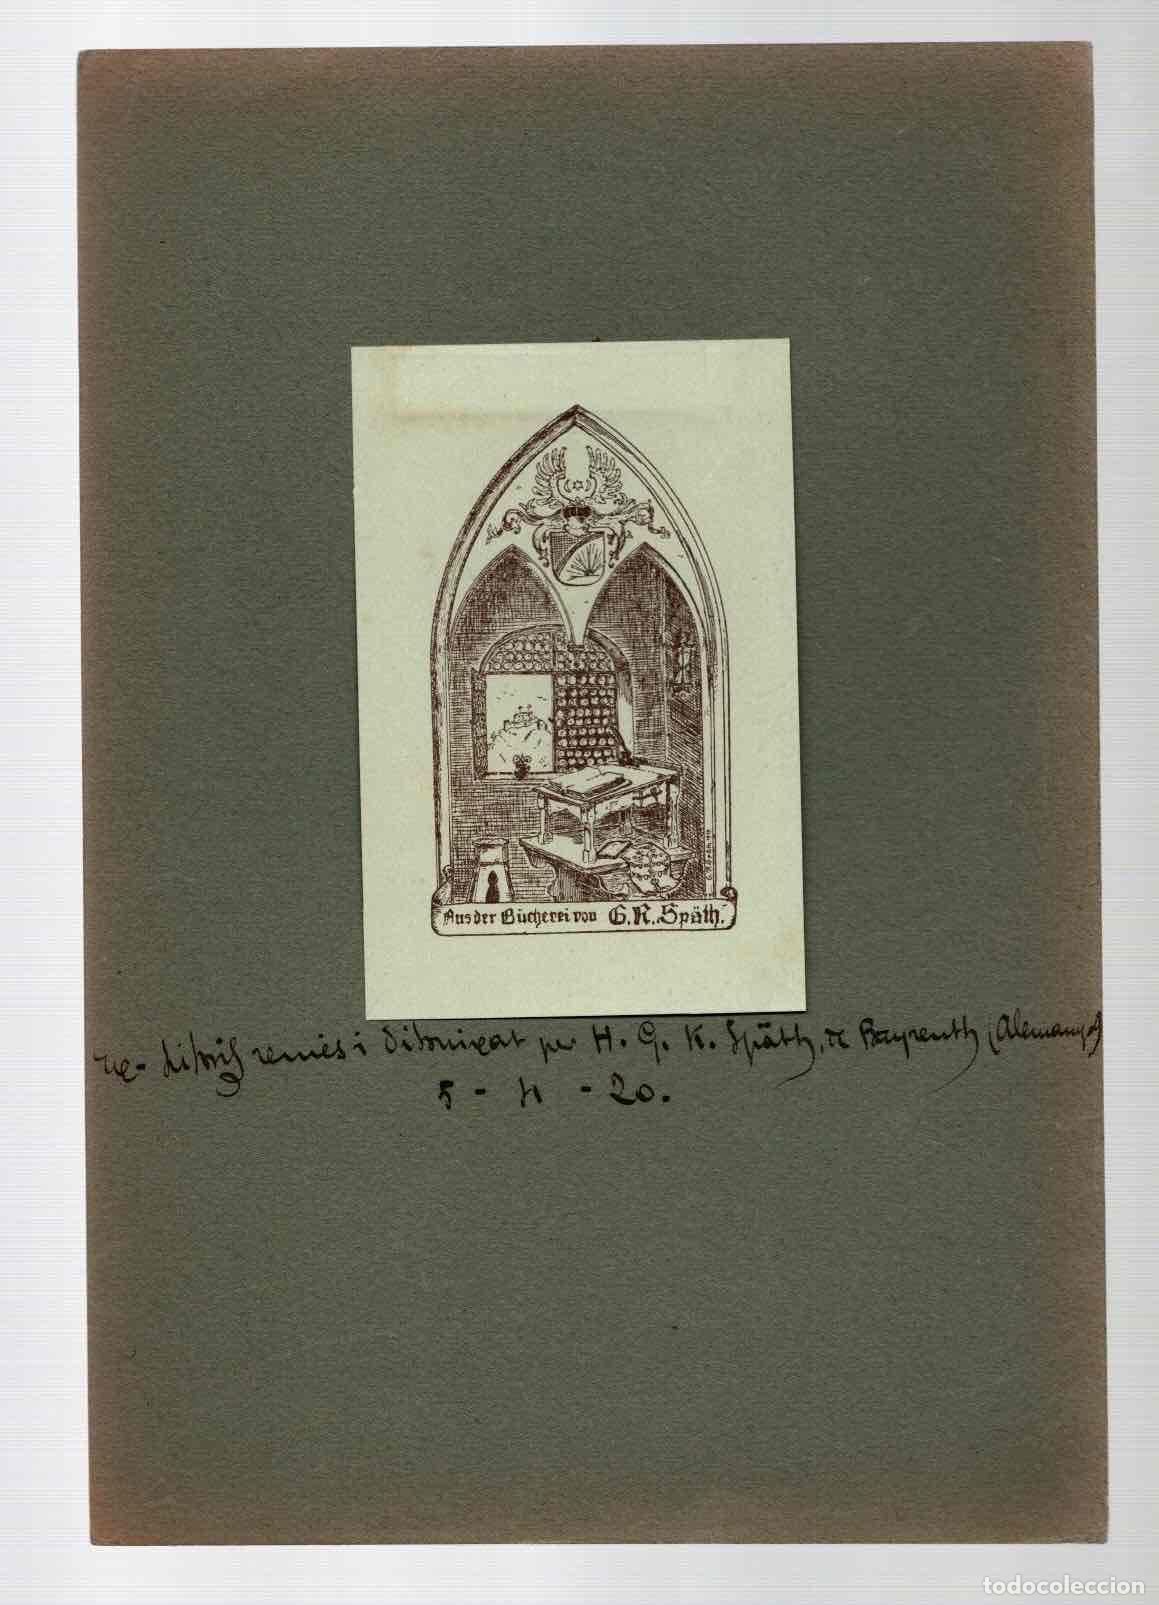 Aus der Bücherei von G.R. Späth.
Ex-libris remés i dibuixat per H. G. K. Späth, de Bayreuth (Alemanya)
5 - 4 - 20.
todocoleccion